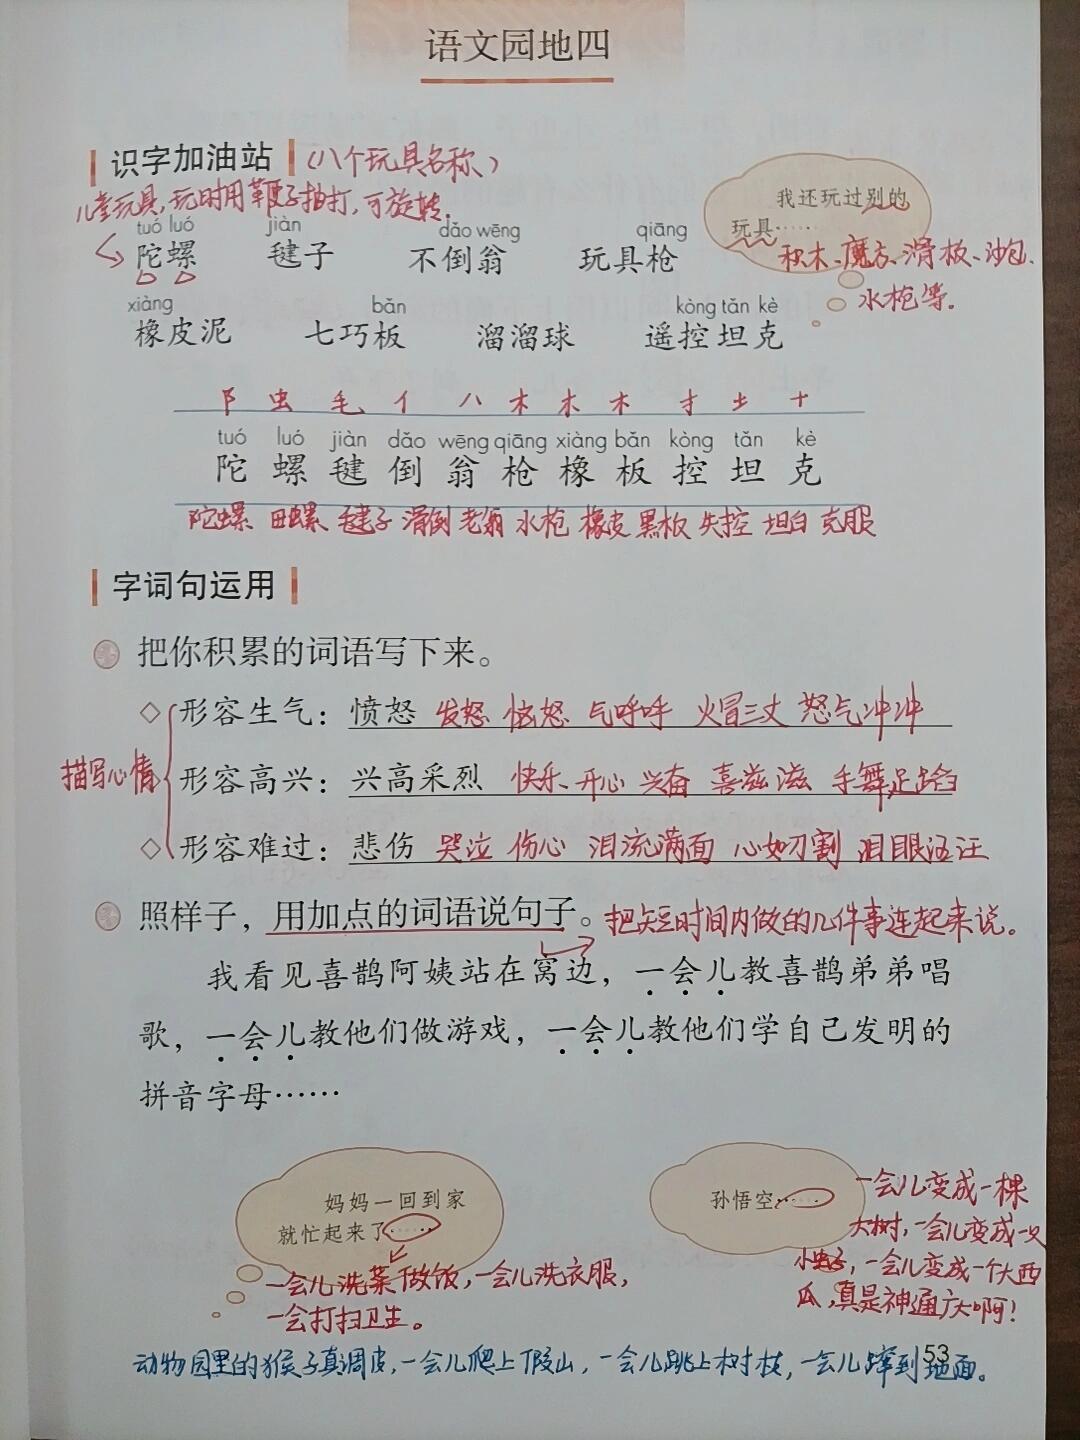 语文园地四
识字加油站 (八个玩具名称)
儿童玩具,玩时用鞭子抽打,可旋转.
我还玩过别的
玩具……
积木、魔方、滑板、沙包、
水枪等.
tuó luó jiàn dǎo wēng qiāng
陀螺 毽子 不倒翁 玩具枪
xiàng bǎn kòng tǎn kè
橡皮泥 七巧板 溜溜球 遥控坦克
阝 虫 毛 亻 八 木 木 木 扌 土 十
tuó luó jiàn dǎo wēng qiāng xiàng bǎn kòng tǎn kè
陀 螺 毽 倒 翁 枪 橡 板 控 坦 克
陀螺 田螺 毽子 滑倒 老翁 水枪 橡皮 黑板 失控 坦白 克服
字词句运用
把你积累的词语写下来。
◇形容生气：愤怒 发怒 恼怒 气呼呼 火冒三丈 怒气冲冲
描写心情
形容高兴：兴高采烈 快乐、开心 兴奋 喜滋滋 手舞足蹈
◇形容难过：悲伤 哭泣 伤心 泪流满面 心如刀割 泪眼汪汪
照样子，用加点的词语说句子。
把短时间内做的几件事连起来说。
我看见喜鹊阿姨站在窝边，一会儿教喜鹊弟弟唱
歌，一会儿教他们做游戏，一会儿教他们学自己发明的
拼音字母……
妈妈一回到家
就忙起来了……
一会儿洗菜做饭,一会儿洗衣服,
一会打扫卫生。
孙悟空……
一会儿变成一棵
大树,一会儿变成一只
小虫子,一会儿变成一个大西
瓜,真是神通广大啊!
动物园里的猴子真调皮,一会儿爬上假山,一会儿跳上树枝,一会儿蹿到地面。
53